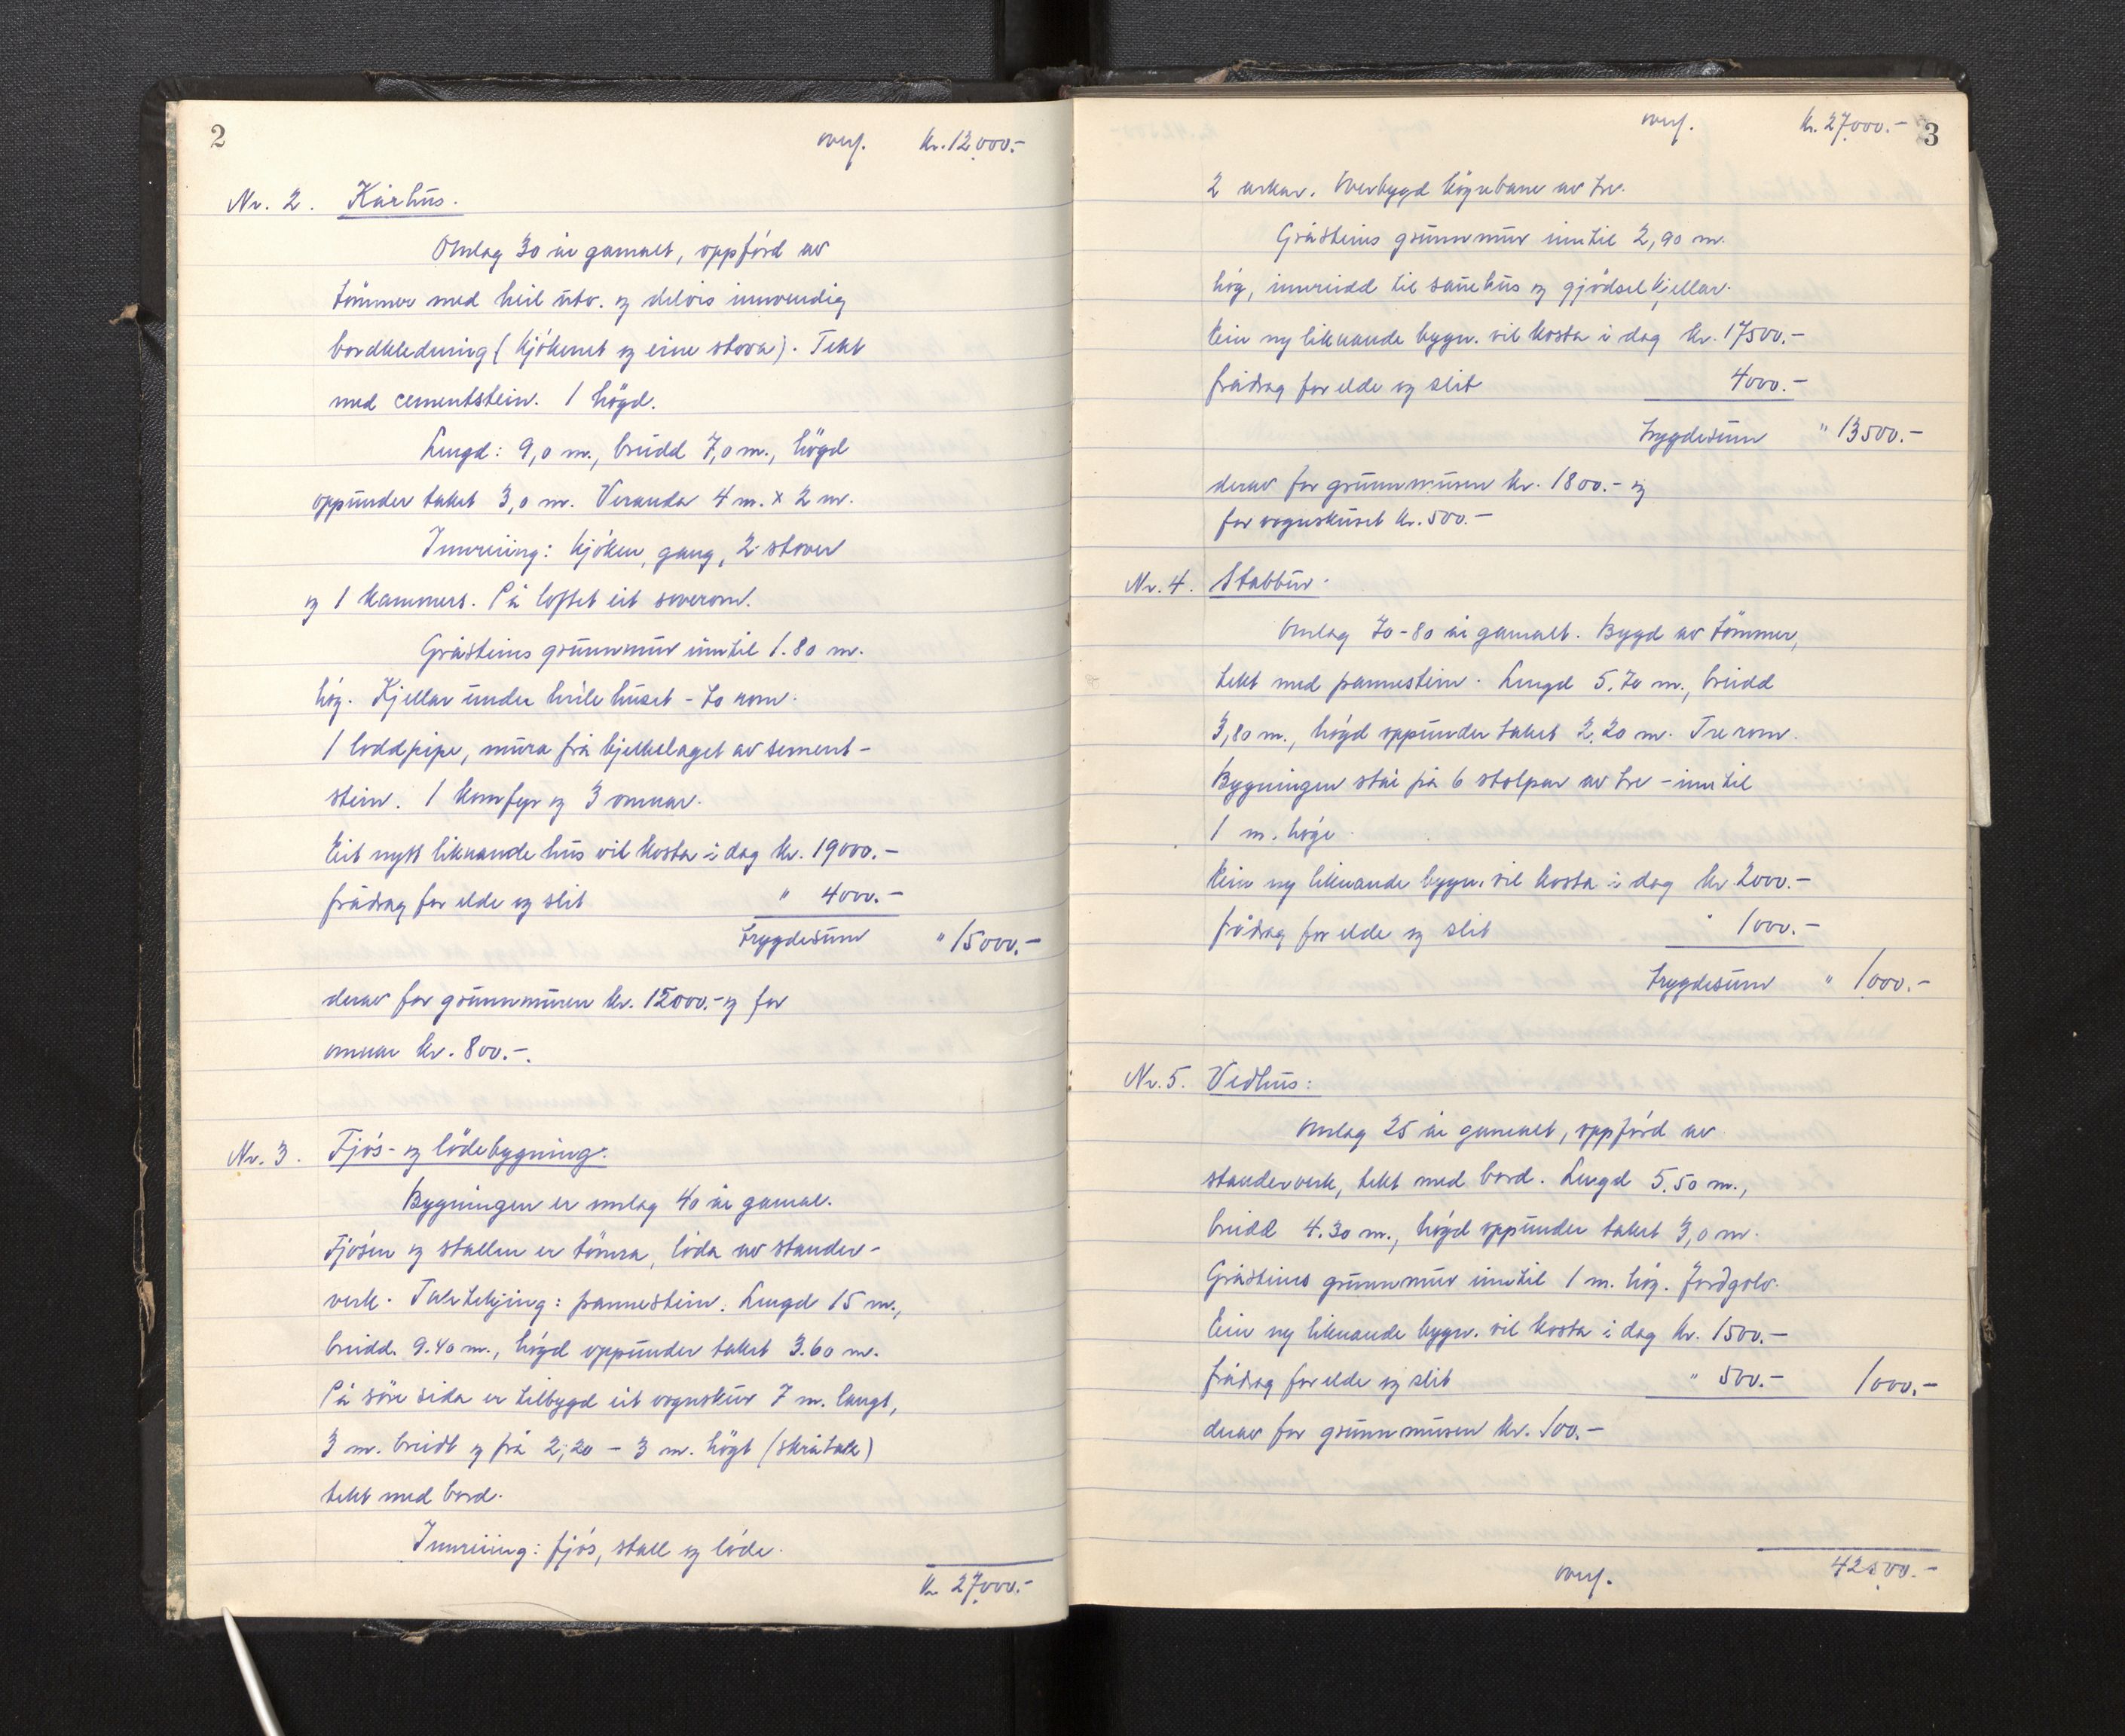 2
overf. kr. 12.000.-
Nr. 2. Kårhus.
Omlag 30 år gamalt, oppförd av
tömmer med heil utv. og delvis innvendig
bordkledning (kjökenet og eine stova). Tekt
med cementstein. 1 högd.
Lengd: 9,0 m., breidd 7,0 m., högd
oppunder taket 3,0 m. Veranda 4 m. x 2 m.
Innreiing: kjöken, gang, 2 stover
og 1 kammers. På loftet eit soverom.
Gråsteins grunnmur inntil 1.80 m.
hög. Kjellar under heile huset - to rom.
1 loddpipe, mura frå bjelkelaget av sement-
stein. 1 komfyr og 3 omnar.
Eit nytt liknande hus vil kosta i dag kr. 19000.-
frådrag for elde og slit " 4000.-
trygdesum " 15000.-
derav for grunnmuren kr. 12000.- og for
omnar kr. 800.-.
Nr. 3. Fjös- og lödebygning.
Bygningen er omlag 40 år gamal.
Fjösen og stallen er tömra, löda av stander-
verk. Taktekjing: pannestein. Lengd 15 m.,
breidd 9.40 m., högd oppunder taket 3.60 m.
På söre sida er tilbygd eit vognskur 7 m. langt,
3 m. breidt og frå 2,20 - 3 m. högt (skråtak)
tekt med bord.
Innreiing: fjös, stall og löde.
kr 27.000.-
overf. kr. 27.000.- 3
2 arkar. Overbygd köyrebane av tre.
Gråsteins grunnmur inntil 2,90 m.
hög, innreidd til sauehus og gjödselkjellar.
Ein ny liknande bygn. vil kosta i dag kr. 17500.-
frådrag for elde og slit 4000.-
trygdesum " 13500.-
derav for grunnmuren kr. 1800.- og
for vognskuret kr. 500.-
Nr. 4. Stabbur.
Omlag 70-80 år gamalt. Bygd av tömmer,
tekt med pannestein. Lengd 5.70 m., breidd
3,80 m., högd oppunder taket 2.20 m. Tre rom.
Bygningen står på 6 stolpar av tre - inntil
1 m. höge.
Ein ny liknande bygn. vil kosta i dag kr 2000.-
frådrag for elde og slit " 1000.-
trygdesum " 1000.-
Nr. 5. Vedhus:
Omlag 25 år gamalt, oppförd av
standerverk, tekt med bord. Lengd 5.50 m.,
breidd 4.30 m., högd oppunder taket 3,0 m.
Gråsteins grunnmur inntil 1 m. hög. Jordgolv.
Ein ny liknande bygn. vil kosta i dag kr. 1500.-
frådrag for elde og slit " 500.- 1000.-
derav for grunnmuren kr. 100.-
overf. 42500.-